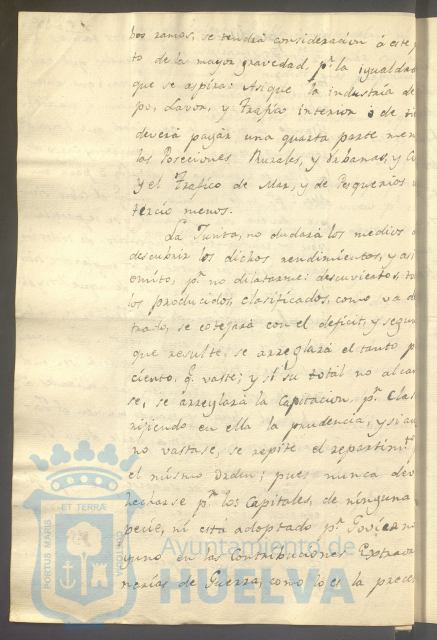 bos ramos, se tendrá consideracion á este p
to de la mayor gravedad, pr. la igualdad
que se aspira: Asi que la industria de
po, Lavor, y trafico interior ó de ti
deverá payar una quarta parte men
las Poseciones Rurales, y Urbanas, y C
y el Trafico de Mar, y de Pesquerias u
tercio menos.
La Junta, no dudará los medios d
descubrir los dichos rendimientos, y asi
omito, pr. no dilatarme: descuviertos, to
los producidos, clasificados, como va de
trado, se cotejará con el deficit, y segun
que resulte, se arreglará el tanto p
ciento, q. vaste; y si su total no alcan
se, se arreglará la Capitacion pr. Clas
rijiendo en ella la prudencia, y si aun
no vastase, se repite el repartimto.
el mismo orden; pues nunca dev
hecharse pr. los Capitales, de ninguna
pecie, ni está adoptado pr. Govierno
guno en las Contribuciones Extraor
narias de Guerra, como lo es la prece
PORTUS MARIS ET TERRÆ CUSTODIA
Ayuntamiento de
HUELVA